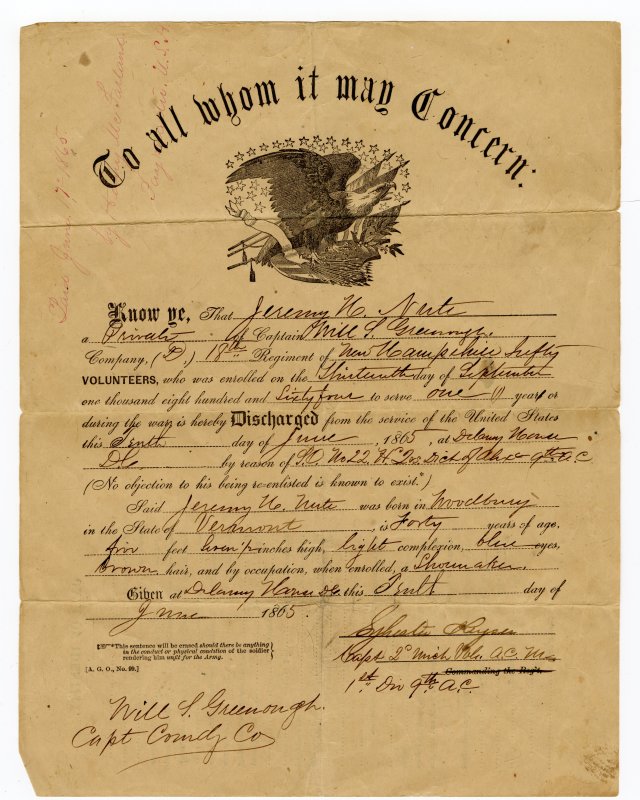 To all whom it may Concern:
Know ye, That Jeremy N. Nute
a Private of Captain Will S. Greenough
Company, (D.) 18th Regiment of New Hampshire Infty
VOLUNTEERS, who was enrolled on the Thirteenth day of September
one thousand eight hundred and Sixty four to serve one (1) years or
during the war, is hereby Discharged from the service of the United States
this Tenth day of June, 1865, at Delany House
D.C. by reason of S.O. No 22 9th A.C.
(No objection to his being re-enlisted is known to exist.*)
Said Jeremy N. Nute was born in Woodbury
in the State of Vermont, is Forty years of age,
five feet inches high, light complexion, blue eyes,
brown hair, and by occupation, when enrolled, a Shoemaker.
Given at Delany House D.C. this Tenth day of
June 1865.
*This sentence will be erased should there be anything
in the conduct or physical condition of the soldier
rendering him unfit for the Army.
[A. G. O., No. 99.]
Capt 2d Mich Vols. A.C.M.
Commanding the Reg't.
1st Div 9th A.C.
Will S. Greenough.
Capt Comdg Co